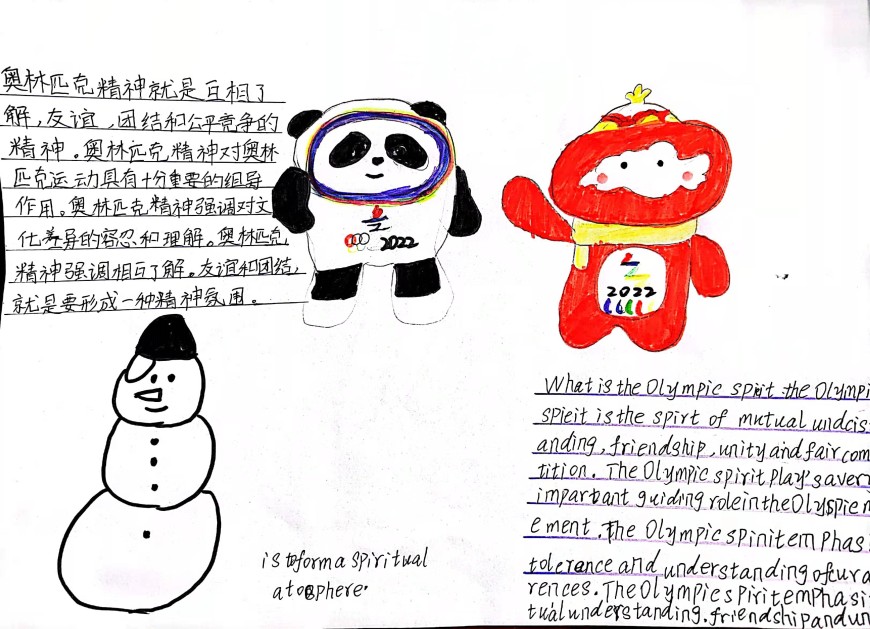 奥林匹克精神就是互相了
解,友谊,团结和公平竞争的
精神。奥林匹克精神对奥林
匹克运动具有十分重要的组导
作用。奥林匹克精神强调对文
化差异的容忍和理解。奥林匹克
精神强调相互了解。友谊和团结,
就是要形成一种精神氛围。
2022
2022
What is the Olympic spirit the Olympi
speit is the spirt of mutual undcis
anding, friendship, unity and fair com
tition. The Olympic spirit play's a very
impartant guiding role in the Olyspic m
ement. The Olympic spinit em phas
tolerence and understanding of
rences. The Olympic spirit emphasi
tual understanding. friendship and un
is to form a spiritual